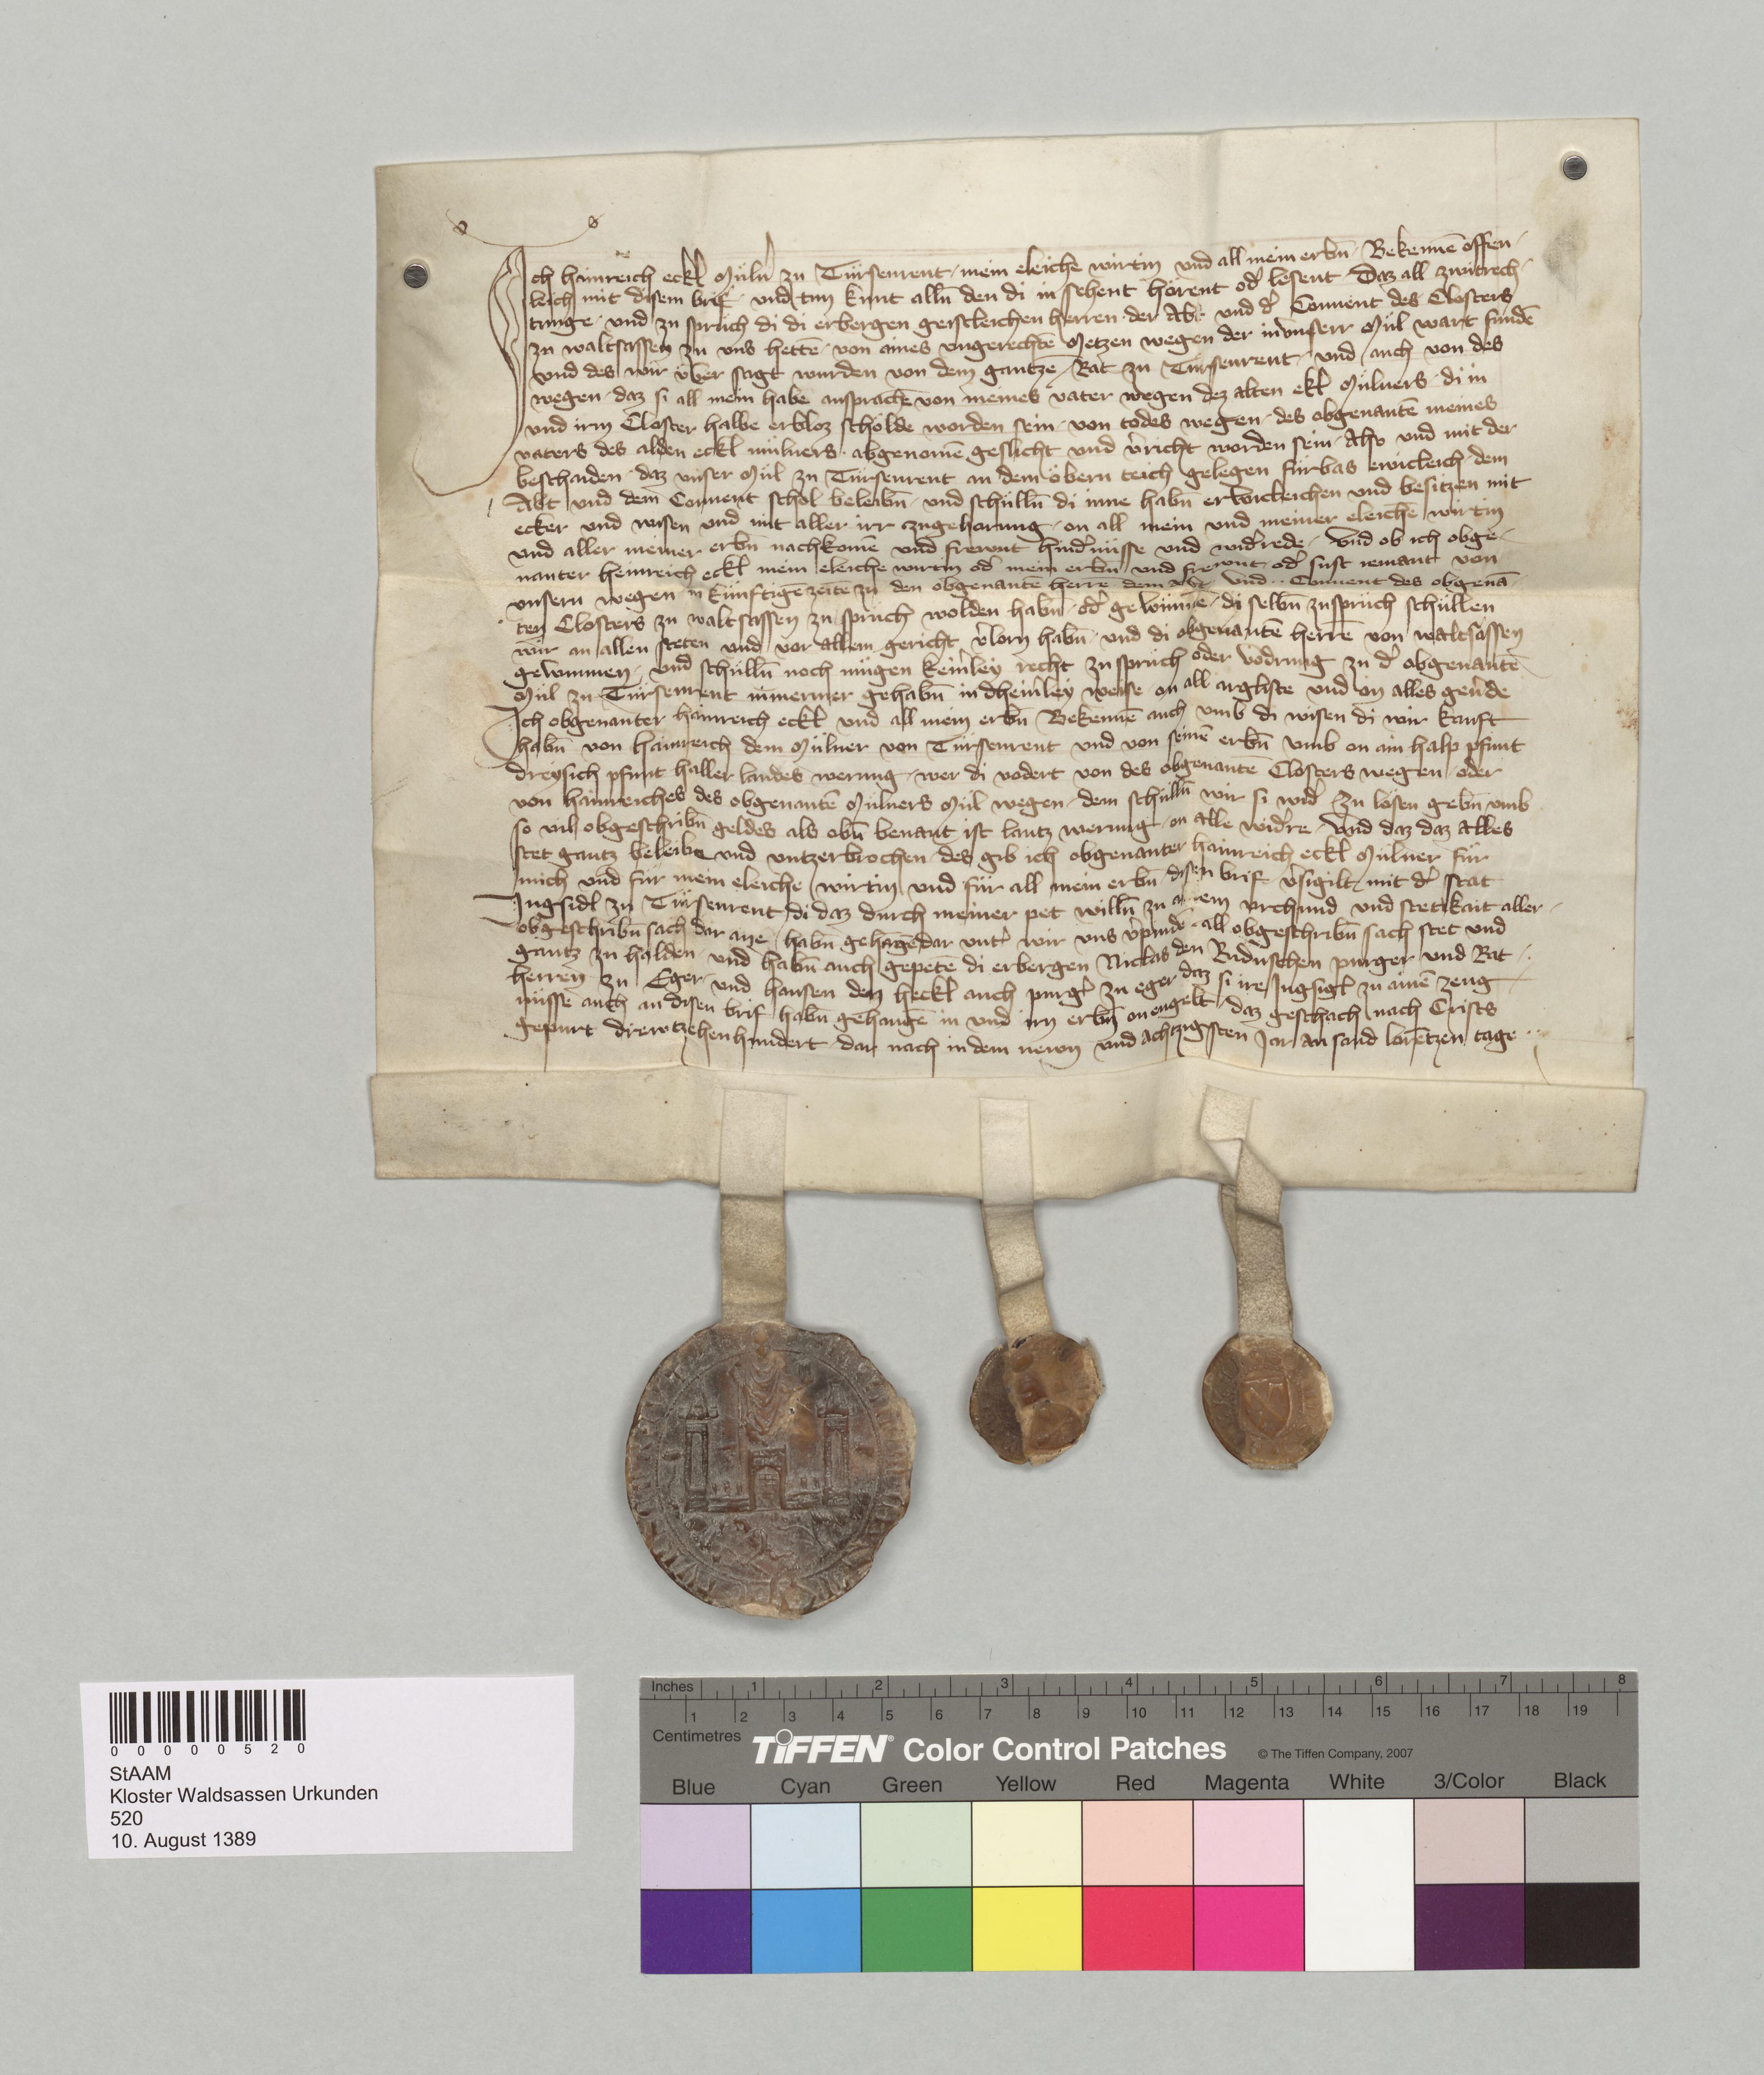 Ich hainreich eckl Müln̄ zu Türsenrent mein eleiche wirtin und all mein erbn̄ Bekennē offen
leich mit disem brif und tun kunt alln̄ den di in sehent hörent od͛ lesent Daz all zwitrech
tunge und zu sprüch di di erbergen geistleichen herren der Abt und d͛ Conuent des Closters
zu waltsassen zu uns hettē von aines ungerechtē Metzen wegen der in unserr Mül wart fundē
und des wir über sagt wurden von dem gantzē Rat zu Türsenrent und auch von des
wegen daz si all mein habe ansprachē von meines vater wegen dez alten ekl Mülners di in
und irm Closter halbe erbloz schölde worden sein von todes wegen des obgenantē meines
vaters des alden eckl mülners abgenomē geslicht und v͛richt worden sein Also und mit der
beschaiden daz unser Mül zu Türsenrent an dem öbern teich gelegen fürbas ewicleich dem
Abt und dem Conuent schol beleibn̄ und schülln̄ di inne habn̄ erbicleichen und besitzen mit
ecker und wisen und mit aller irr zugehorung on all mein und meiner eleichē wirtin
und aller meiner erbn̄ nachkomē und frewnt hind͛nüsse und wid͛rede Und ob ich obge
nanter heinreich eckl mein eleiche wirtin od͛ mein erbn̄ und frewnt od͛ sust iemant von
unsern wegen in künftigē zeitē zu den obgenantē herrē dem abt und Conuent des obgenā
ten Closters zu waltsassen zu sprüch wolden habn̄ od͛ gewinnē di selbn̄ zusprüch schüllen
wir an allen steten und vor allem gericht v͛lorn habn̄ und di obgenantē herrē von waltsassen
gewunnen und schülln̄ noch mügen kein͛ley recht zu sprüch oder vodrung zu d͛ obgenantē
Mül zu Türsenrent nimermer gehabn̄ in dhein͛ley weise on all argliste und on alles geu͛de
Ich obgenanter hainreich eckl und all mein erbn̄ Bekennē auch umb di wisen di wir kauft
habn̄ von hainreich dem Mülner von Türsenrent und von seinē erbn̄ umb on ain halp pfunt
dreysich pfunt haller landes werung wer di vodert von des obgenantē Closters wegen oder
von hainreiches des obgenantē Mülners Mül wegen dem schülln̄ wir si wid͛ zu lösen gebn̄ umb
so vil obgeschribn̄ geldes als obn̄ benant ist lantz werung on alle wid͛re Und daz daz alles
stet gantz beleibe und untzerbrochen des gib ich obgenanter hainreich eckl Mülner für
mich und für mein eleiche wirtin und für all mein erbn̄ disen brif v͛sigilt mit d͛ stat
Ingsidl zu Türsenrent di daz durch meiner pet willn̄ zu ainem urchund und stetikait aller
obgeschribn̄ sach dar ane habn̄ gehāgē dar unt͛ wir uns v͛pindē all obgeschribn̄ sach stet und
gantz zu halden und habn̄ auch gepetē di erbergen Niclas den Ruduschen purger und Rat
herren zu Eger und hansen den heckl auch purg͛ zu eger daz si ire Ingsigl zu ainē zeug
nüsse auch an disen brif habn̄ gehangē in und irn erbn̄ on engelt daz geschach nach Crists
gepurt drewtzehenhundert dar nach in dem newn und achtzigsten Jar an sand lorētzen tage
0 0 0 0 0 5 2 0
StAAM
Kloster Waldsassen Urkunden
520
10. August 1389
Inches 1 2 3 4 5 6 7 8
1 2 3 4 5 6 7 8 9 10 11 12 13 14 15 16 17 18 19
Centimetres
TIFFEN® Color Control Patches © The Tiffen Company, 2007
Blue Cyan Green Yellow Red Magenta White 3/Color Black